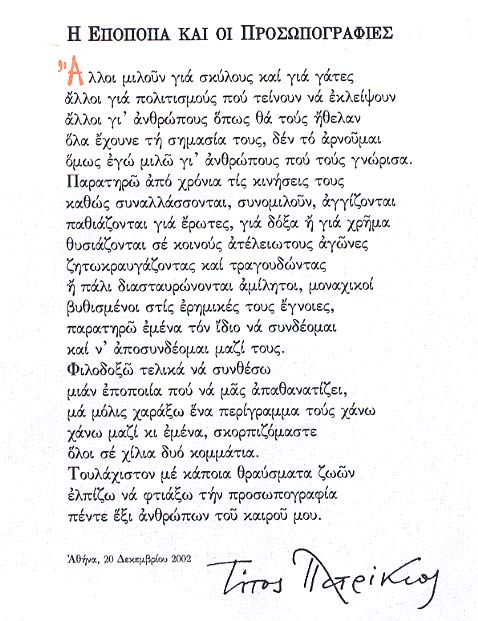 Η ΕΠΟΠΟΙΙΑ ΚΑΙ ΟΙ ΠΡΟΣΩΠΟΓΡΑΦΙΕΣ
Ἄλλοι μιλοῦν γιά σκύλους καί γιά γάτες
ἄλλοι γιά πολιτισμούς πού τείνουν νά ἐκλείψουν
ἄλλοι γι' ἀνθρώπους ὅπως θά τούς ἤθελαν
ὅλα ἔχουνε τή σημασία τους, δέν τό ἀρνοῦμαι
ὅμως ἐγώ μιλῶ γι' ἀνθρώπους πού τούς γνώρισα.
Παρατηρῶ ἀπό χρόνια τίς κινήσεις τους
καθώς συναλλάσσονται, συνομιλοῦν, ἀγγίζονται
παθιάζονται γιά ἔρωτες, γιά δόξα ἤ γιά χρῆμα
θυσιάζονται σέ κοινούς ἀτέλειωτους ἀγῶνες
ζητωκραυγάζοντας καί τραγουδώντας
ἤ πάλι διασταυρώνονται ἀμίλητοι, μοναχικοί
βυθισμένοι στίς ἐρημικές τους ἔγνοιες,
παρατηρῶ ἐμένα τόν ἴδιο νά συνδέομαι
καί ν' ἀποσυνδέομαι μαζί τους.
Φιλοδοξῶ τελικά νά συνθέσω
μιάν ἐποποιία πού νά μᾶς ἀπαθανατίζει,
μά μόλις χαράξω ἕνα περίγραμμα τούς χάνω
χάνω μαζί κι ἐμένα, σκορπιζόμαστε
ὅλοι σέ χίλια δυό κομμάτια.
Τουλάχιστον μέ κάποια θραύσματα ζωῶν
ἐλπίζω νά φτιάξω τήν προσωπογραφία
πέντε ἕξι ἀνθρώπων τοῦ καιροῦ μου.
Ἀθήνα, 20 Δεκεμβρίου 2002
Τίτος Πατρίκιος